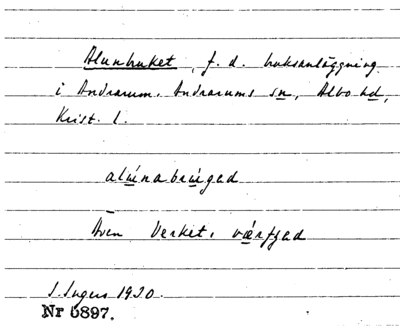 Alunbruket, f. d. bruksanläggning
i Andrarum. Andrarums sn, Albo hd,
Krist. l.
alúnabrúgad
Även Verket.
S. Ingers 1920.
Nr 5897.